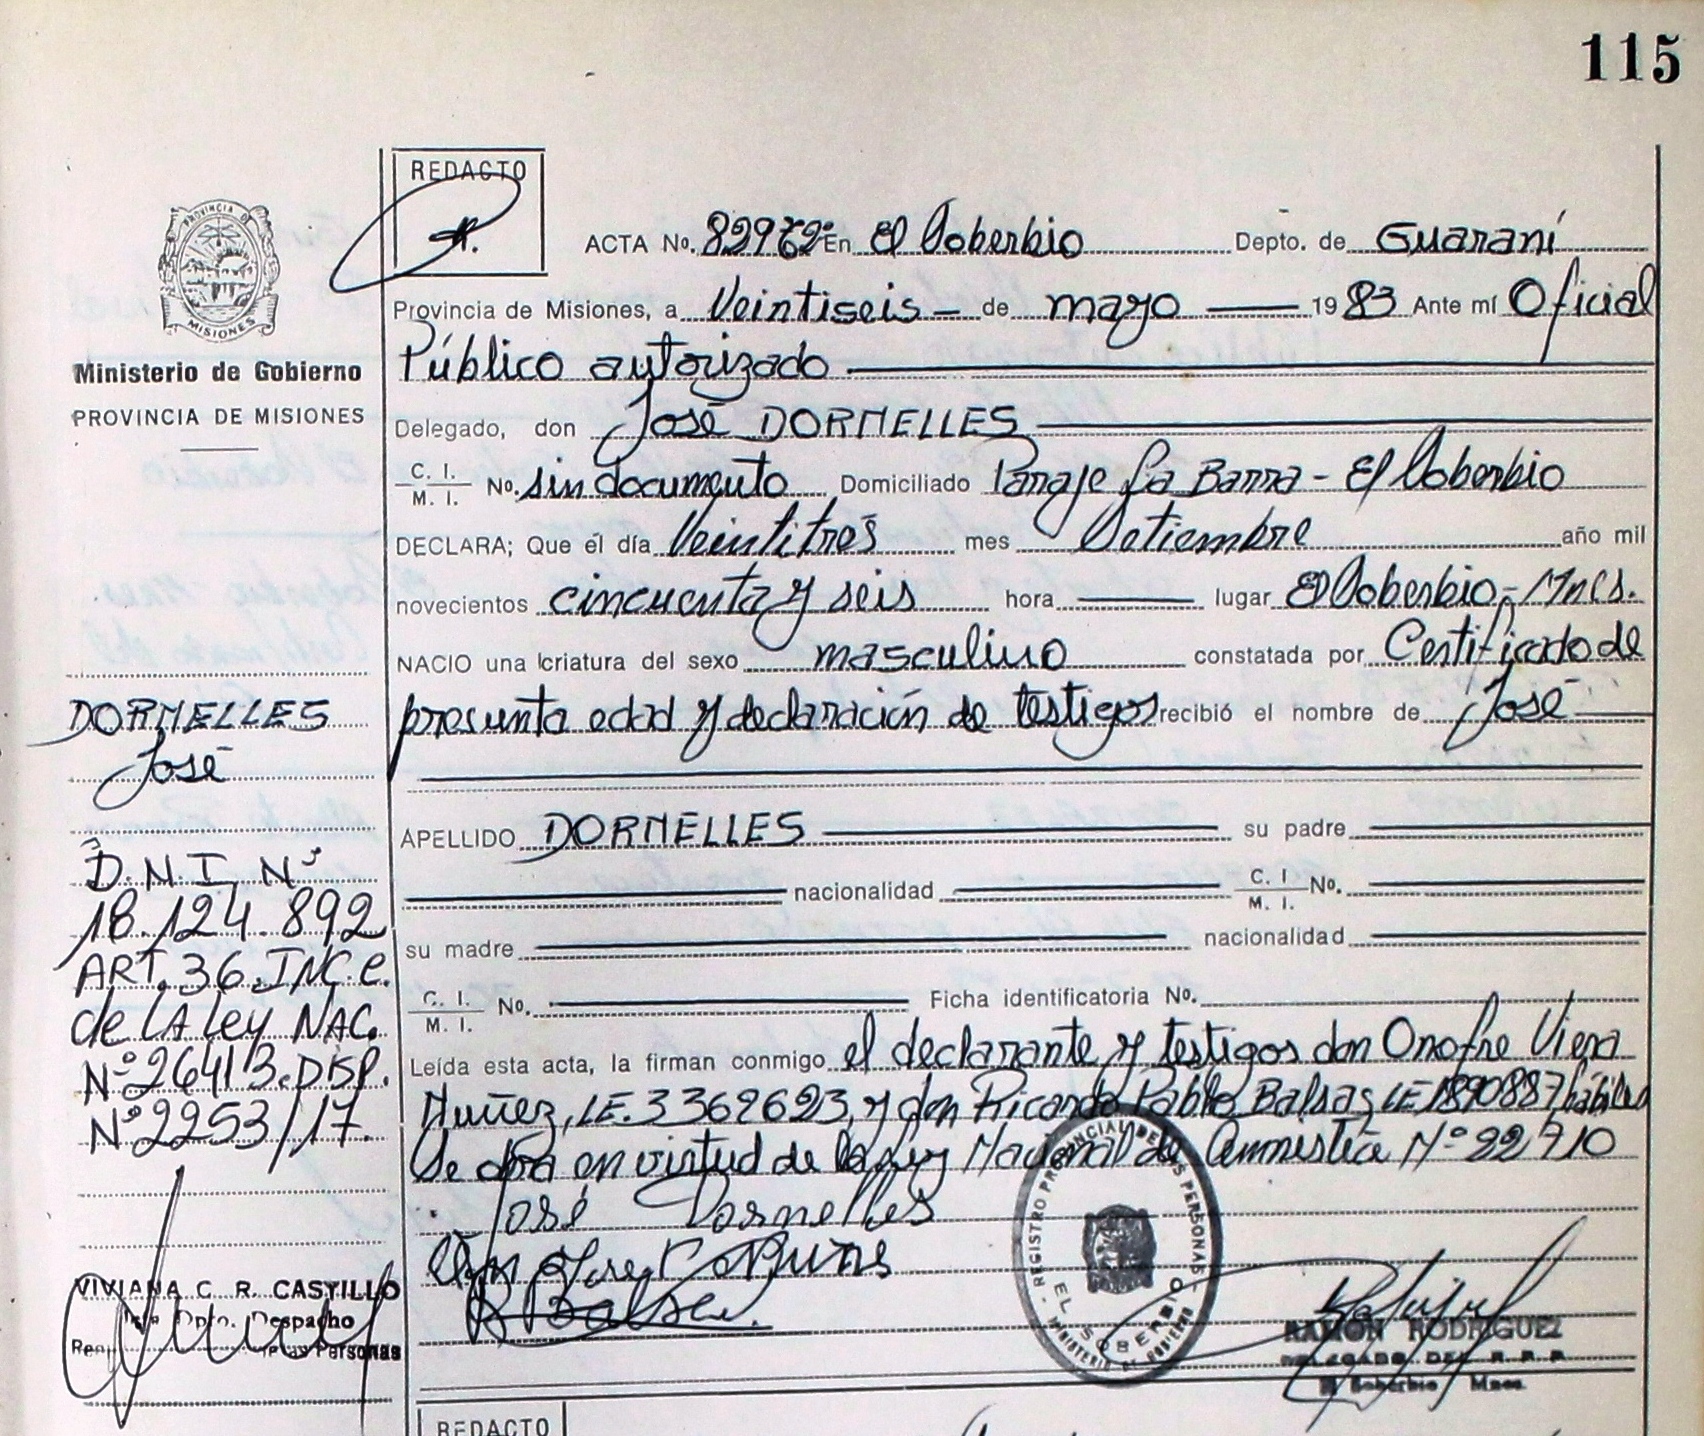 115
REDACTO
ACTA No. 82972º En El Soberbio Depto. de Guaraní
Provincia de Misiones, a Veintiseis - de mayo 1983 Ante mí Oficial
Público autorizado
Delegado, don José DORNELLES
C. I. / M. I. No. sin documento Domiciliado Paraje La Barra - El Soberbio
DECLARA; Que el día Veintitrés mes Setiembre año mil
novecientos cincuenta y seis hora lugar El Soberbio - Mnes.
NACIO una criatura del sexo masculino constatada por Certificado de
presunta edad y declaración de testigos recibió el nombre de José
APELLIDO DORNELLES su padre
nacionalidad C. I. / M. I. No.
su madre nacionalidad
C. I. / M. I. No. Ficha identificatoria No.
Leída esta acta, la firman conmigo el declarante y testigos don Onofre Viera
Nuñez, LE. 3362623, y don Ricardo Pablo Balsaz LE 1890887 hábiles
Se obra en virtud de la Ley Nacional de Amnistia Nº 22710
José Dornelles
PROVINCIA D MISIONES
Ministerio de Gobierno
PROVINCIA DE MISIONES
DORNELLES
José
D.N.I. Nº
18.124.892
ART. 36. INC. C.
de LA Ley NAC.
Nº 26413. DISP.
Nº 2253/17.
VIVIANA C. R. CASTILLO
Dpto. Despacho
de las Personas
REGISTRO PROVINCIAL DE LAS PERSONAS
EL SOBERBIO
MINISTERIO DE GOBIERNO
RAMON RODRIGUEZ
DELEGADO DEL R. P. P.
El Soberbio Mnes.
REDACTO